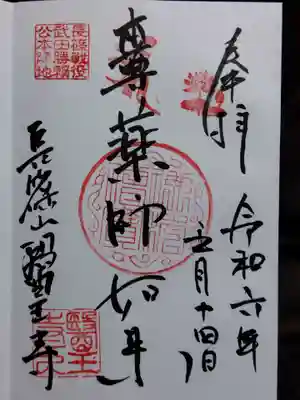 奉拝
令和六年
五月十四日
本尊薬師如来
長篠戦役
武田勝頼
公本陣地
長篠山醫王寺